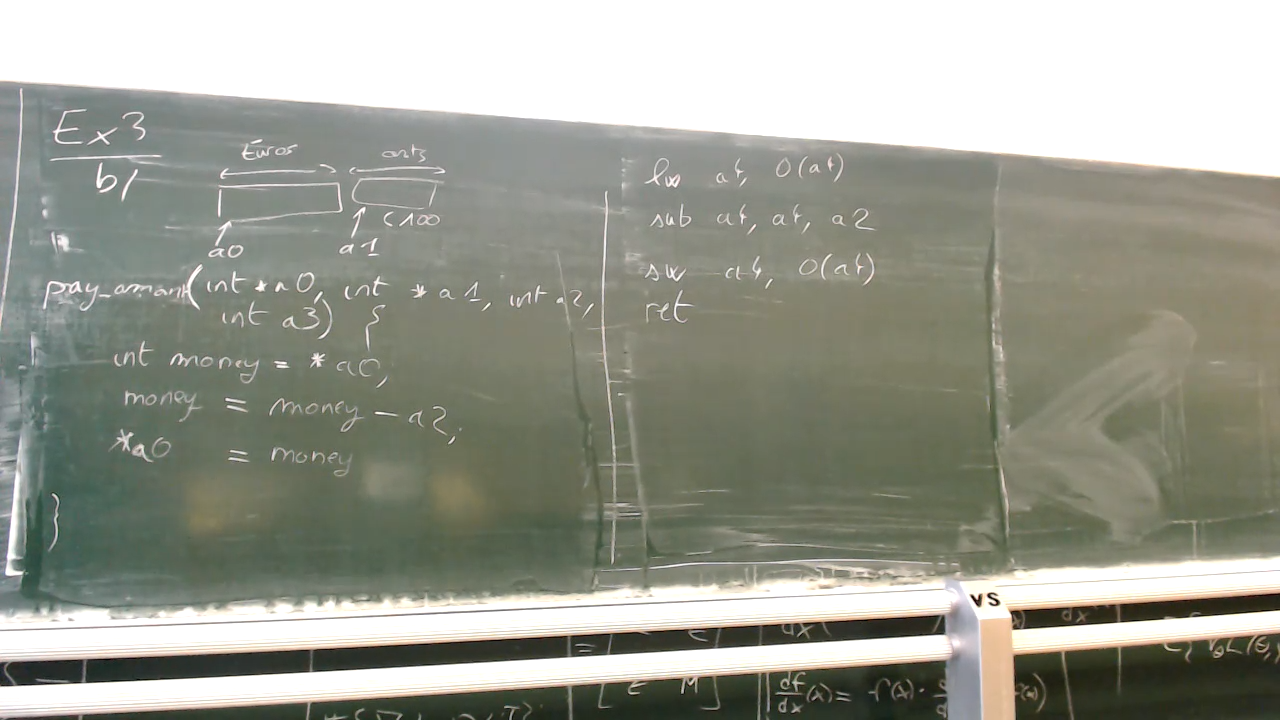 Ex 3
b)
Euros cents
<100
a0 a1
pay_amant(int *a0, int *a1, int a2,
int a3) {
int money = *a0,
money = money - a2;
*a0 = money
}
lw a4, 0(a4)
sub a4, a4, a2
sw a4, 0(a4)
ret
VS